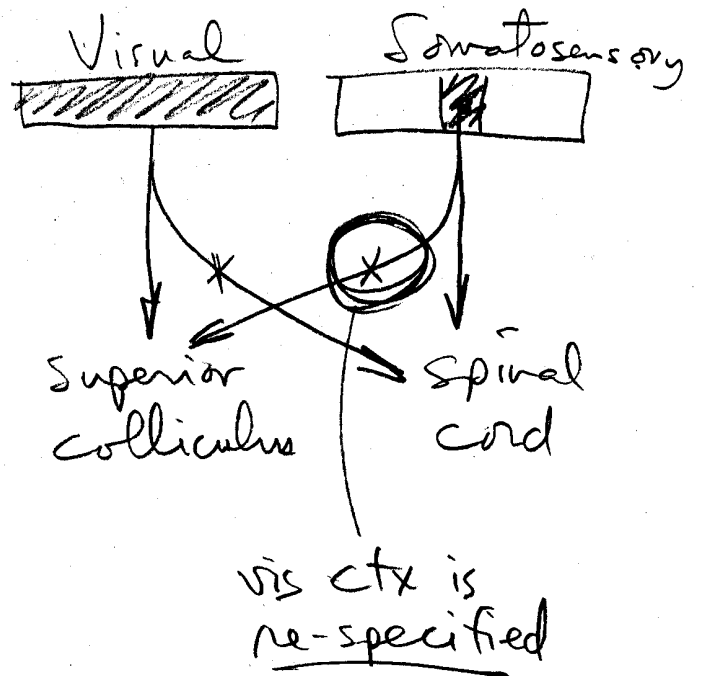 Visual
Somatosensory
Superior
colliculus
Spinal
cord
vis ctx is
re-specified